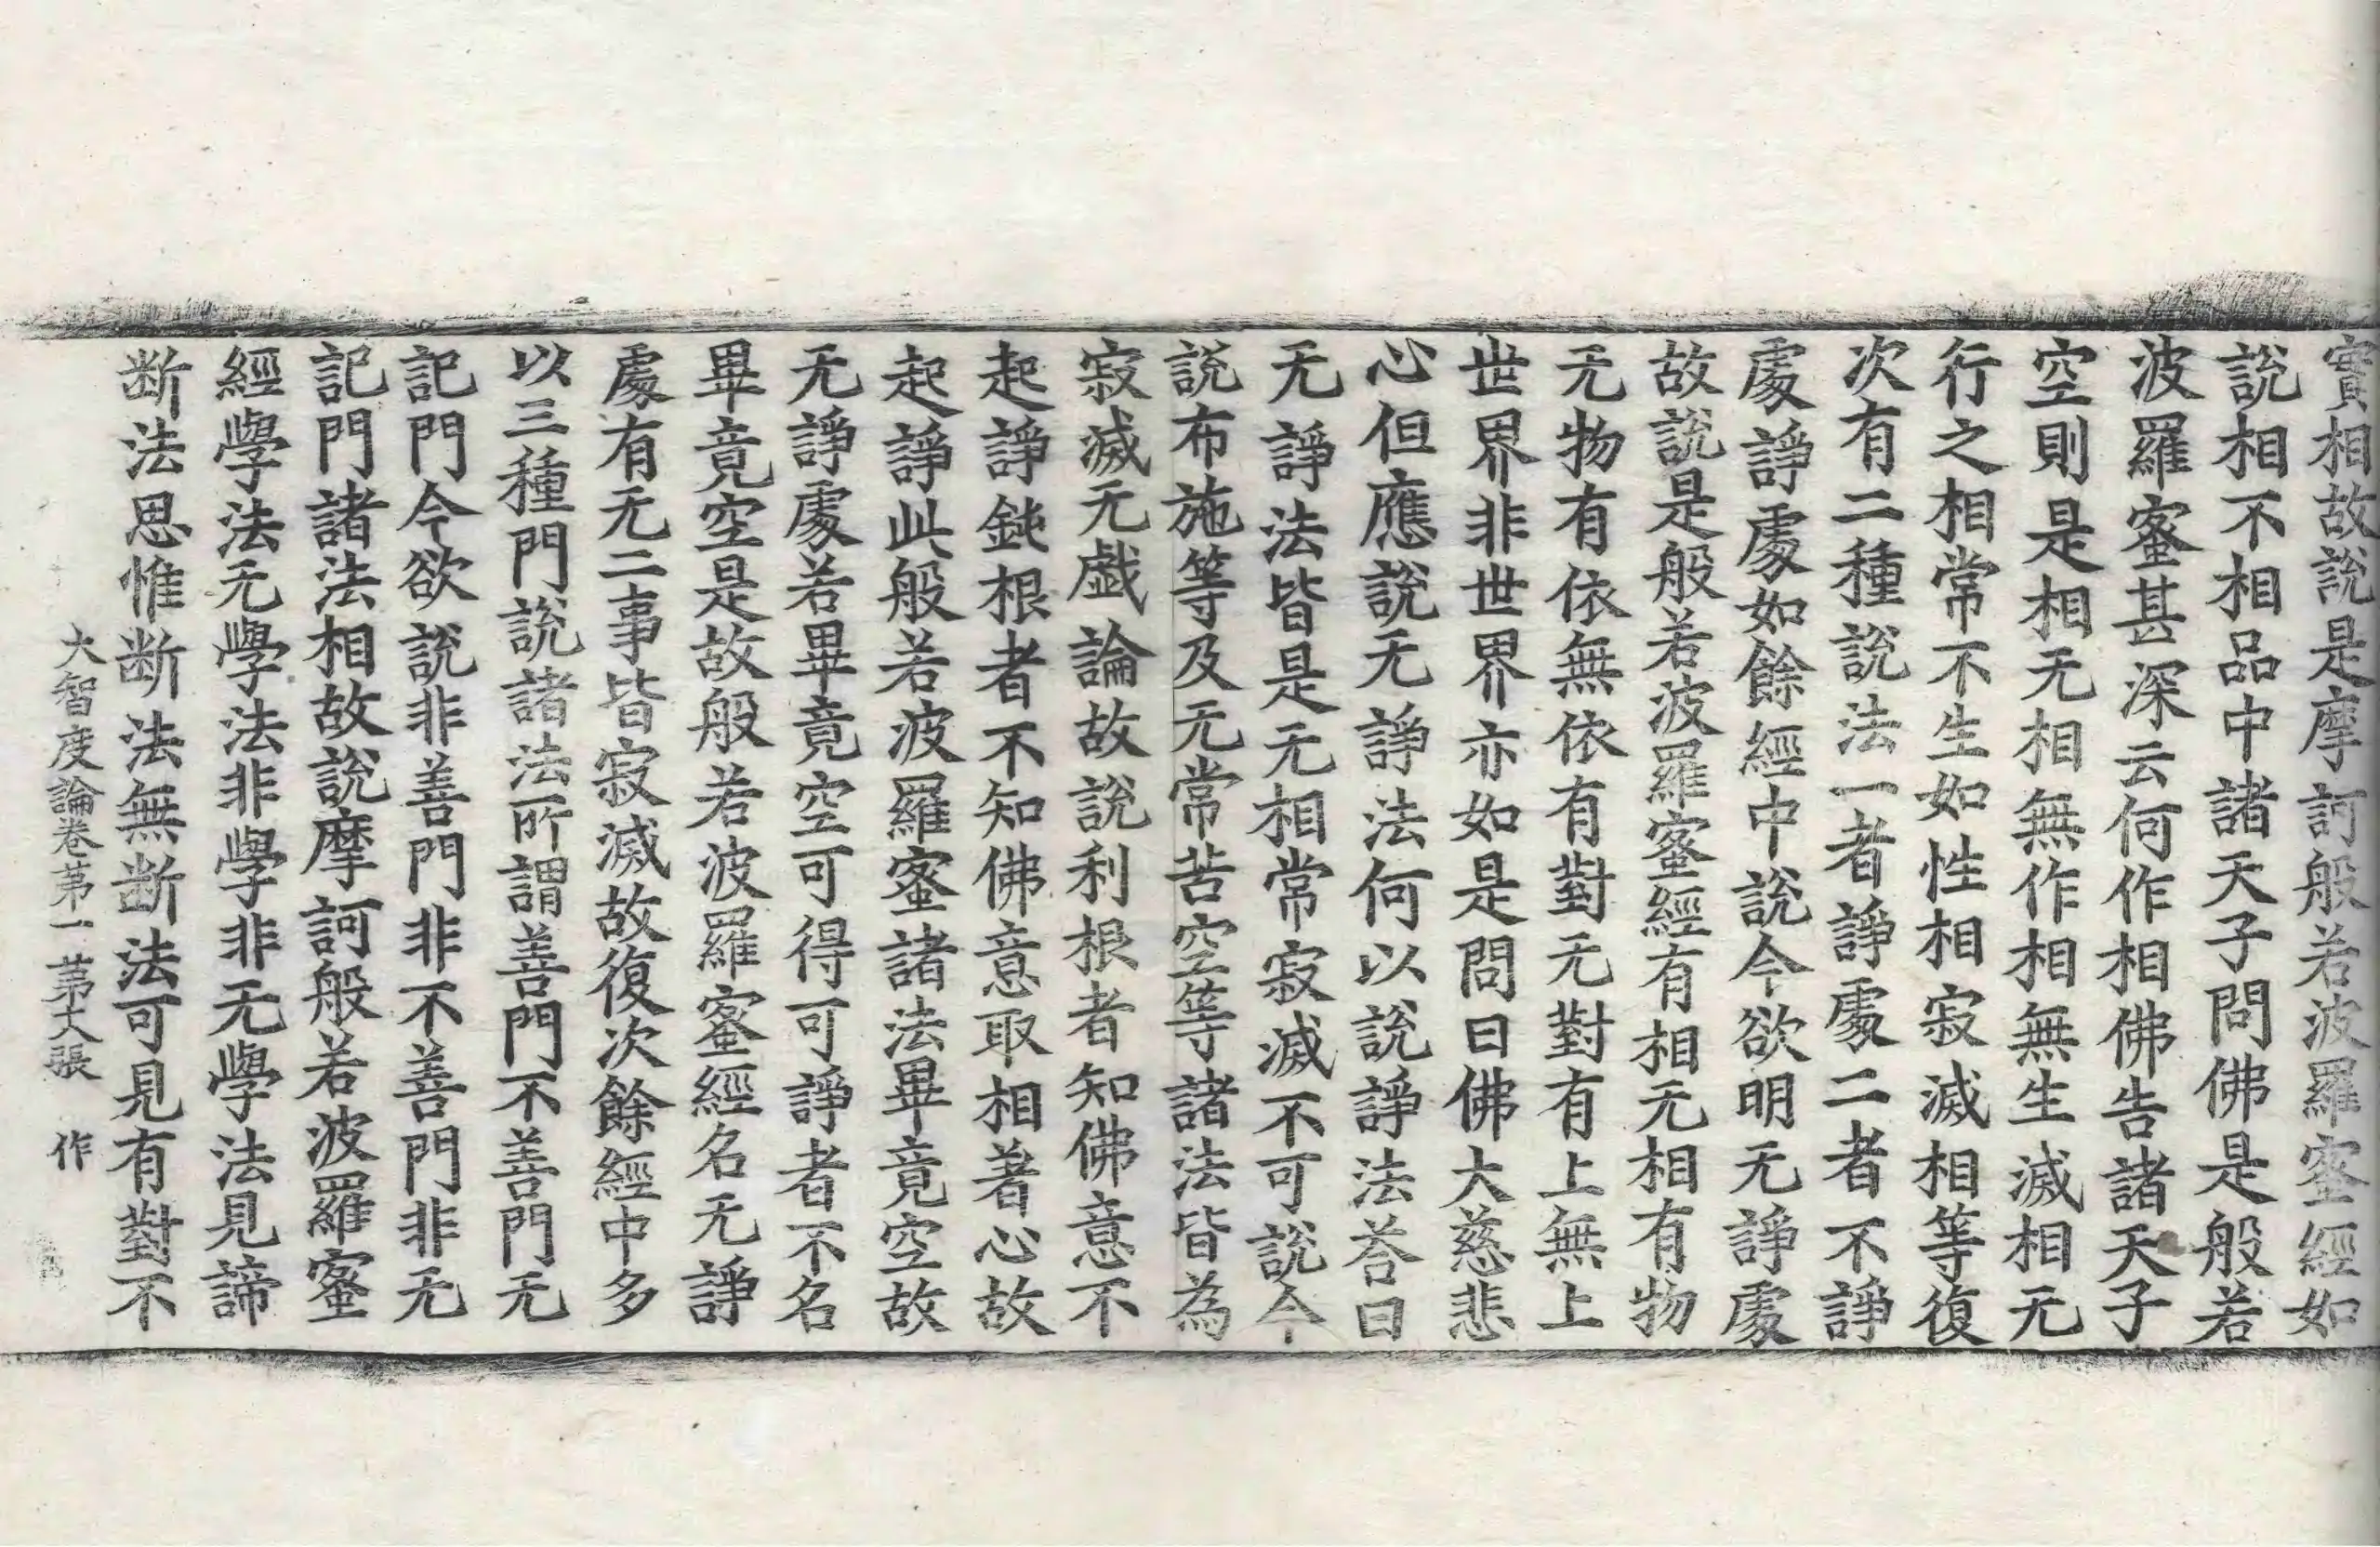 實相故說是摩訶般若波羅蜜經如
說相不相品中諸天子問佛是般若
波羅蜜甚深云何作相佛告諸天子
空則是相无相無作相無生滅相无
行之相常不生如性相寂滅相等復
次有二種說法一者諍處二者不諍
處諍處如餘經中說今欲明无諍處
故說是般若波羅蜜經有相无相有物
无物有依無依有對无對有上無上
世界非世界亦如是問曰佛大慈悲
心但應說无諍法何以說諍法荅曰
无諍法皆是无相常寂滅不可說今
說布施等及无常苦空等諸法皆為
寂滅无戲論故說利根者知佛意不
起諍鈍根者不知佛意取相著心故
起諍此般若波羅蜜諸法畢竟空故
无諍處若畢竟空可得可諍者不名
畢竟空是故般若波羅蜜經名无諍
處有无二事皆寂滅故復次餘經中多
以三種門說諸法所謂善門不善門无
記門今欲說非善門非不善門非无
記門諸法相故說摩訶般若波羅蜜
經學法无學法非學非无學法見諦
断法思惟断法無断法可見有對不
大智度論卷苐一 苐大張 作